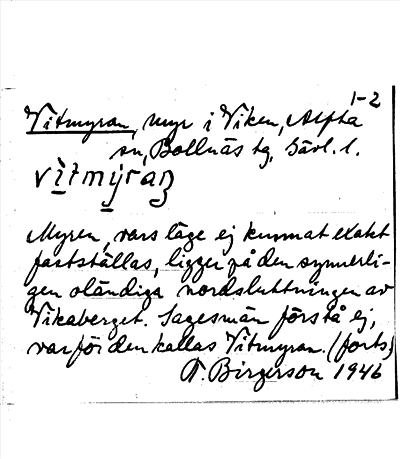 1-2
Vitmyran, myr i Viken, Alfta
sn, Bollnäs tg, Gävl. l.
vìtmýraṉ
Myren, vars läge ej kunnat exakt
fastställas, ligger på den synnerli-
gen oländiga nordsluttningen av
Vikaberget. Sagesmän förstå ej,
varför den kallas Vitmyran. (forts)
T. Birgerson 1946